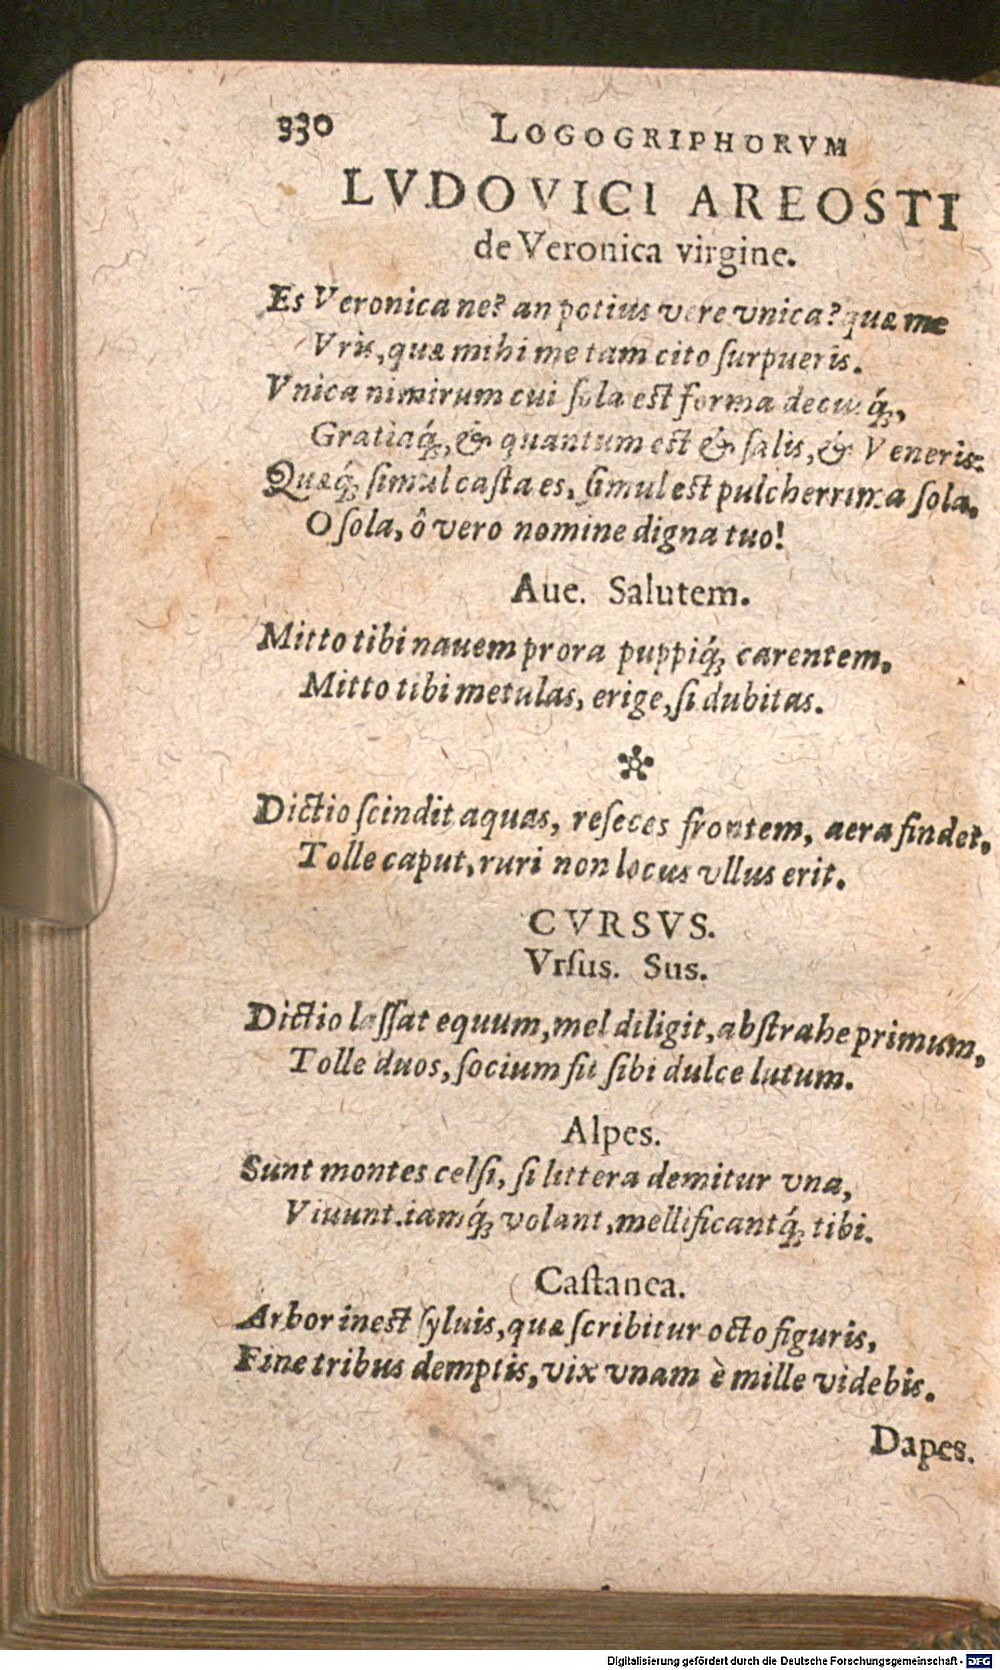 330 LOGOGRIPHORVM
LVDOVICI AREOSTI
de Veronica virgine.
Es Veronica ne? an potius vere vnica? quæ me
Vris, quæ mihi me tam cito ſurpueris.
Vnica nimirum cui ſola eſt forma decuſq́;,
Gratiaq́;, & quantum eſt & ſalis, & Veneris:
Quæq́; ſimul caſta es, ſimul eſt pulcherrima ſola,
O ſola, ô vero nomine digna tuo!
Aue. Salutem.
Mitto tibi nauem prora puppiq́; carentem,
Mitto tibi metulas, erige, ſi dubitas.
Dictio ſcindit aquas, reſeces frontem, aera findet,
Tolle caput, ruri non locus vllus erit.
CVRSVS.
Vrſus. Sus.
Dictio laſſat equum, mel diligit, abſtrahe primum,
Tolle duos, ſocium fit ſibi dulce lutum.
Alpes.
Sunt montes celſi, ſi littera demitur vna,
Viuunt iamq́; volant, mellificantq́; tibi.
Caſtanea.
Arbor ineſt ſyluis, quæ ſcribitur octo figuris,
Fine tribus demptis, vix vnam è mille videbis.
Dapes.
Digitalisierung gefördert durch die Deutsche Forschungsgemeinschaft - DFG